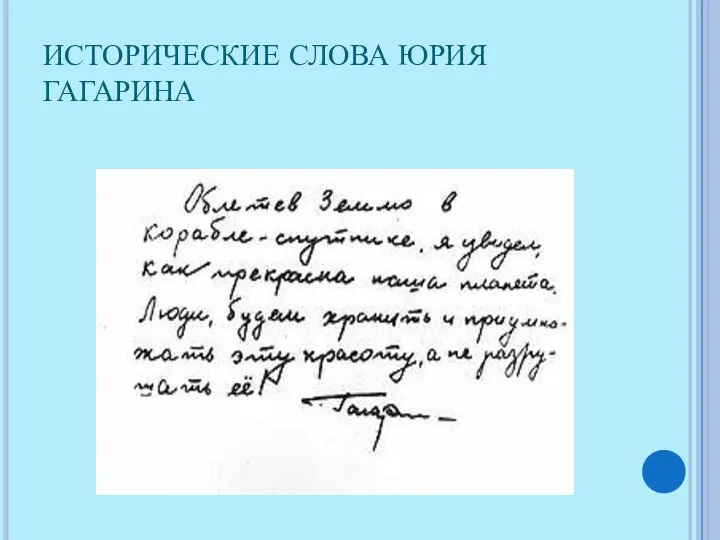 ИСТОРИЧЕСКИЕ СЛОВА ЮРИЯ
ГАГАРИНА
Облетев Землю в
корабле-спутнике, я увидел,
как прекрасна наша планета.
Люди, будем хранить и приумно-
жать эту красоту, а не разру-
шать её!
Гагарин